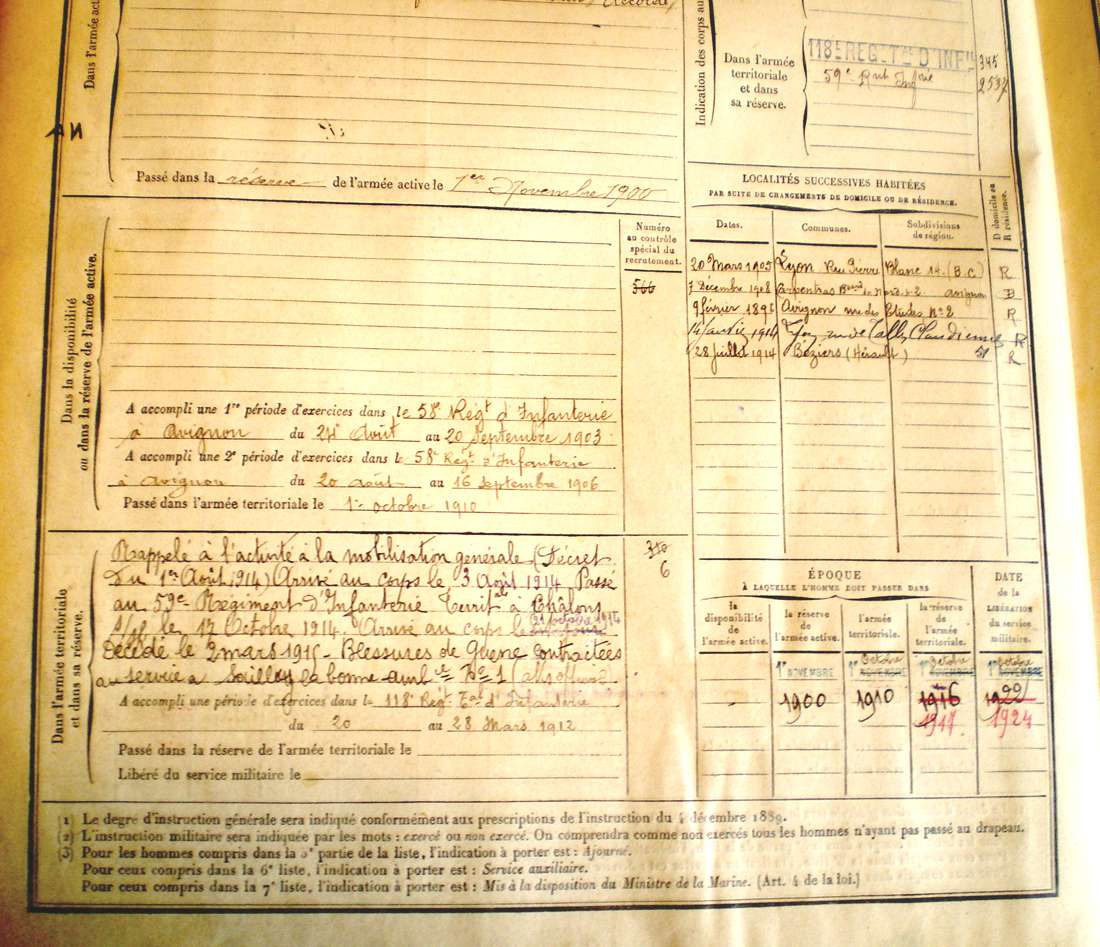 Accordé
Dans l'armée act
Passé dans la réserve de l'armée active le 1er Novembre 1900
Indication des corps au
Dans l'armée
territoriale
et dans
sa réserve.
118E REGT TAL D'INFIE
59e Rnt Infrie
345
2537
LOCALITÉS SUCCESSIVES HABITÉES
PAR SUITE DE CHANGEMENTS DE DOMICILE OU DE RÉSIDENCE.
D domicile ou
R résidence.
Dates. Communes. Subdivisions
de région.
20 Mars 1903 Lyon Rue Pierre Blanc 14. (B.C) R
7 Décembre 1908 Carpentras du Nord n° 2 avignon D
9 février 1896 Avignon rue des Etudes N° 2 R
1914 Lyon rue de R
28 Juillet 1914 Béziers (Hérault) R
Dans la disponibilité
ou dans la réserve de l'armée active.
Numéro
au contrôle
spécial du
recrutement.
566
A accompli une 1re période d'exercices dans le 58e Régt d'Infanterie
à Avignon du 24 Août au 20 Septembre 1903
A accompli une 2e période d'exercices dans le 58e Régt d'Infanterie
à Avignon du 20 août au 16 Septembre 1906
Passé dans l'armée territoriale le 1er octobre 1910
Dans l'armée territoriale
et dans sa réserve.
Rappelé à l'activité à la mobilisation générale (Décret
du 1er Août 1914) Arrivé au corps le 3 Août 1914 Passé
au 59e Régiment d'Infanterie Territal à Châlons
s/ le 17 Octobre 1914. Arrivé au corps le 21 octobre 1914
Décédé le 2 mars 1915 - Blessures de Guerre contractées
au service à Sailly la bonne N° 1
A accompli une période d'exercices dans le 118e Régt Tal d'Infanterie
du 20 au 28 Mars 1912
Passé dans la réserve de l'armée territoriale le
Libéré du service militaire le
6
ÉPOQUE
À LAQUELLE L'HOMME DOIT PASSER DANS
DATE
DE LA
LIBÉRATION
du service
militaire.
la
disponibilité
de
l'armée active.
la réserve
de
l'armée active.
l'armée
territoriale.
la réserve
de
l'armée
territoriale.
1er NOVEMBRE 1er Octobre NOVEMBRE 1er Octobre NOVEMBRE 1er Octobre NOVEMBRE
- 1900 1910 1916 1922
1917. 1924
(1) Le degré d'instruction générale sera indiqué conformément aux prescriptions de l'instruction du 4 décembre 1889.
(2) L'instruction militaire sera indiquée par les mots : exercé ou non exercé. On comprendra comme non exercés tous les hommes n'ayant pas passé au drapeau.
(3) Pour les hommes compris dans la 5e partie de la liste, l'indication à porter est : Ajourné.
Pour ceux compris dans la 6e liste, l'indication à porter est : Service auxiliaire.
Pour ceux compris dans la 7e liste, l'indication à porter est : Mis à la disposition du Ministre de la Marine. (Art. 4 de la loi.)